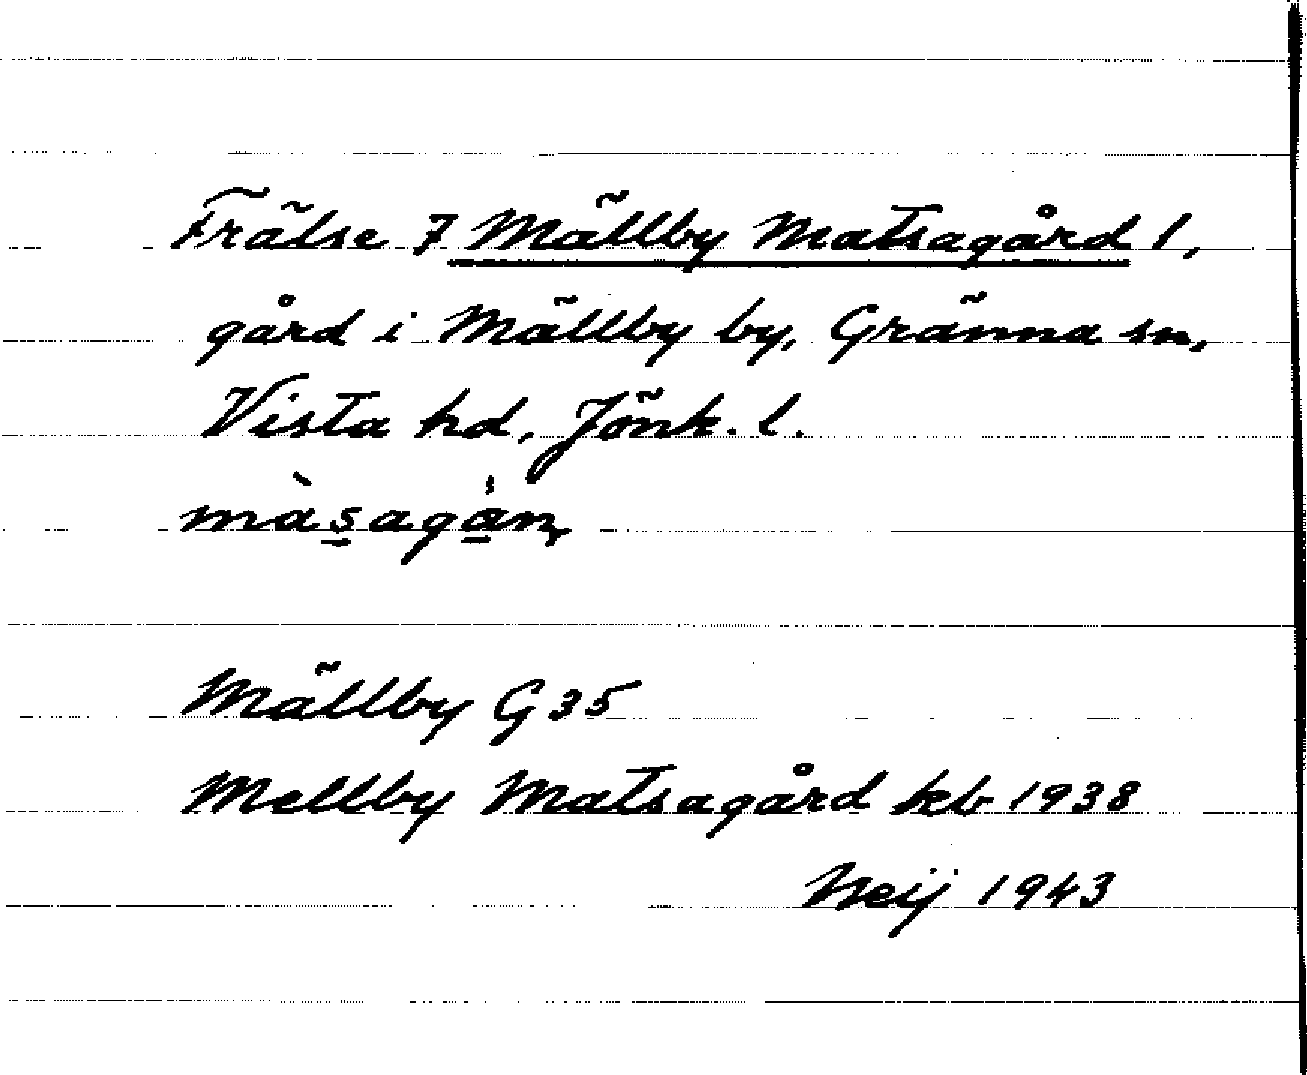 Frälse 7 Mällby Matsagård 1,
gård i Mällby by, Gränna sn,
Vista hd, Jönk. l.
màsagån
Mällby G 35
Mellby Matsagård kb 1938
Neij 1943